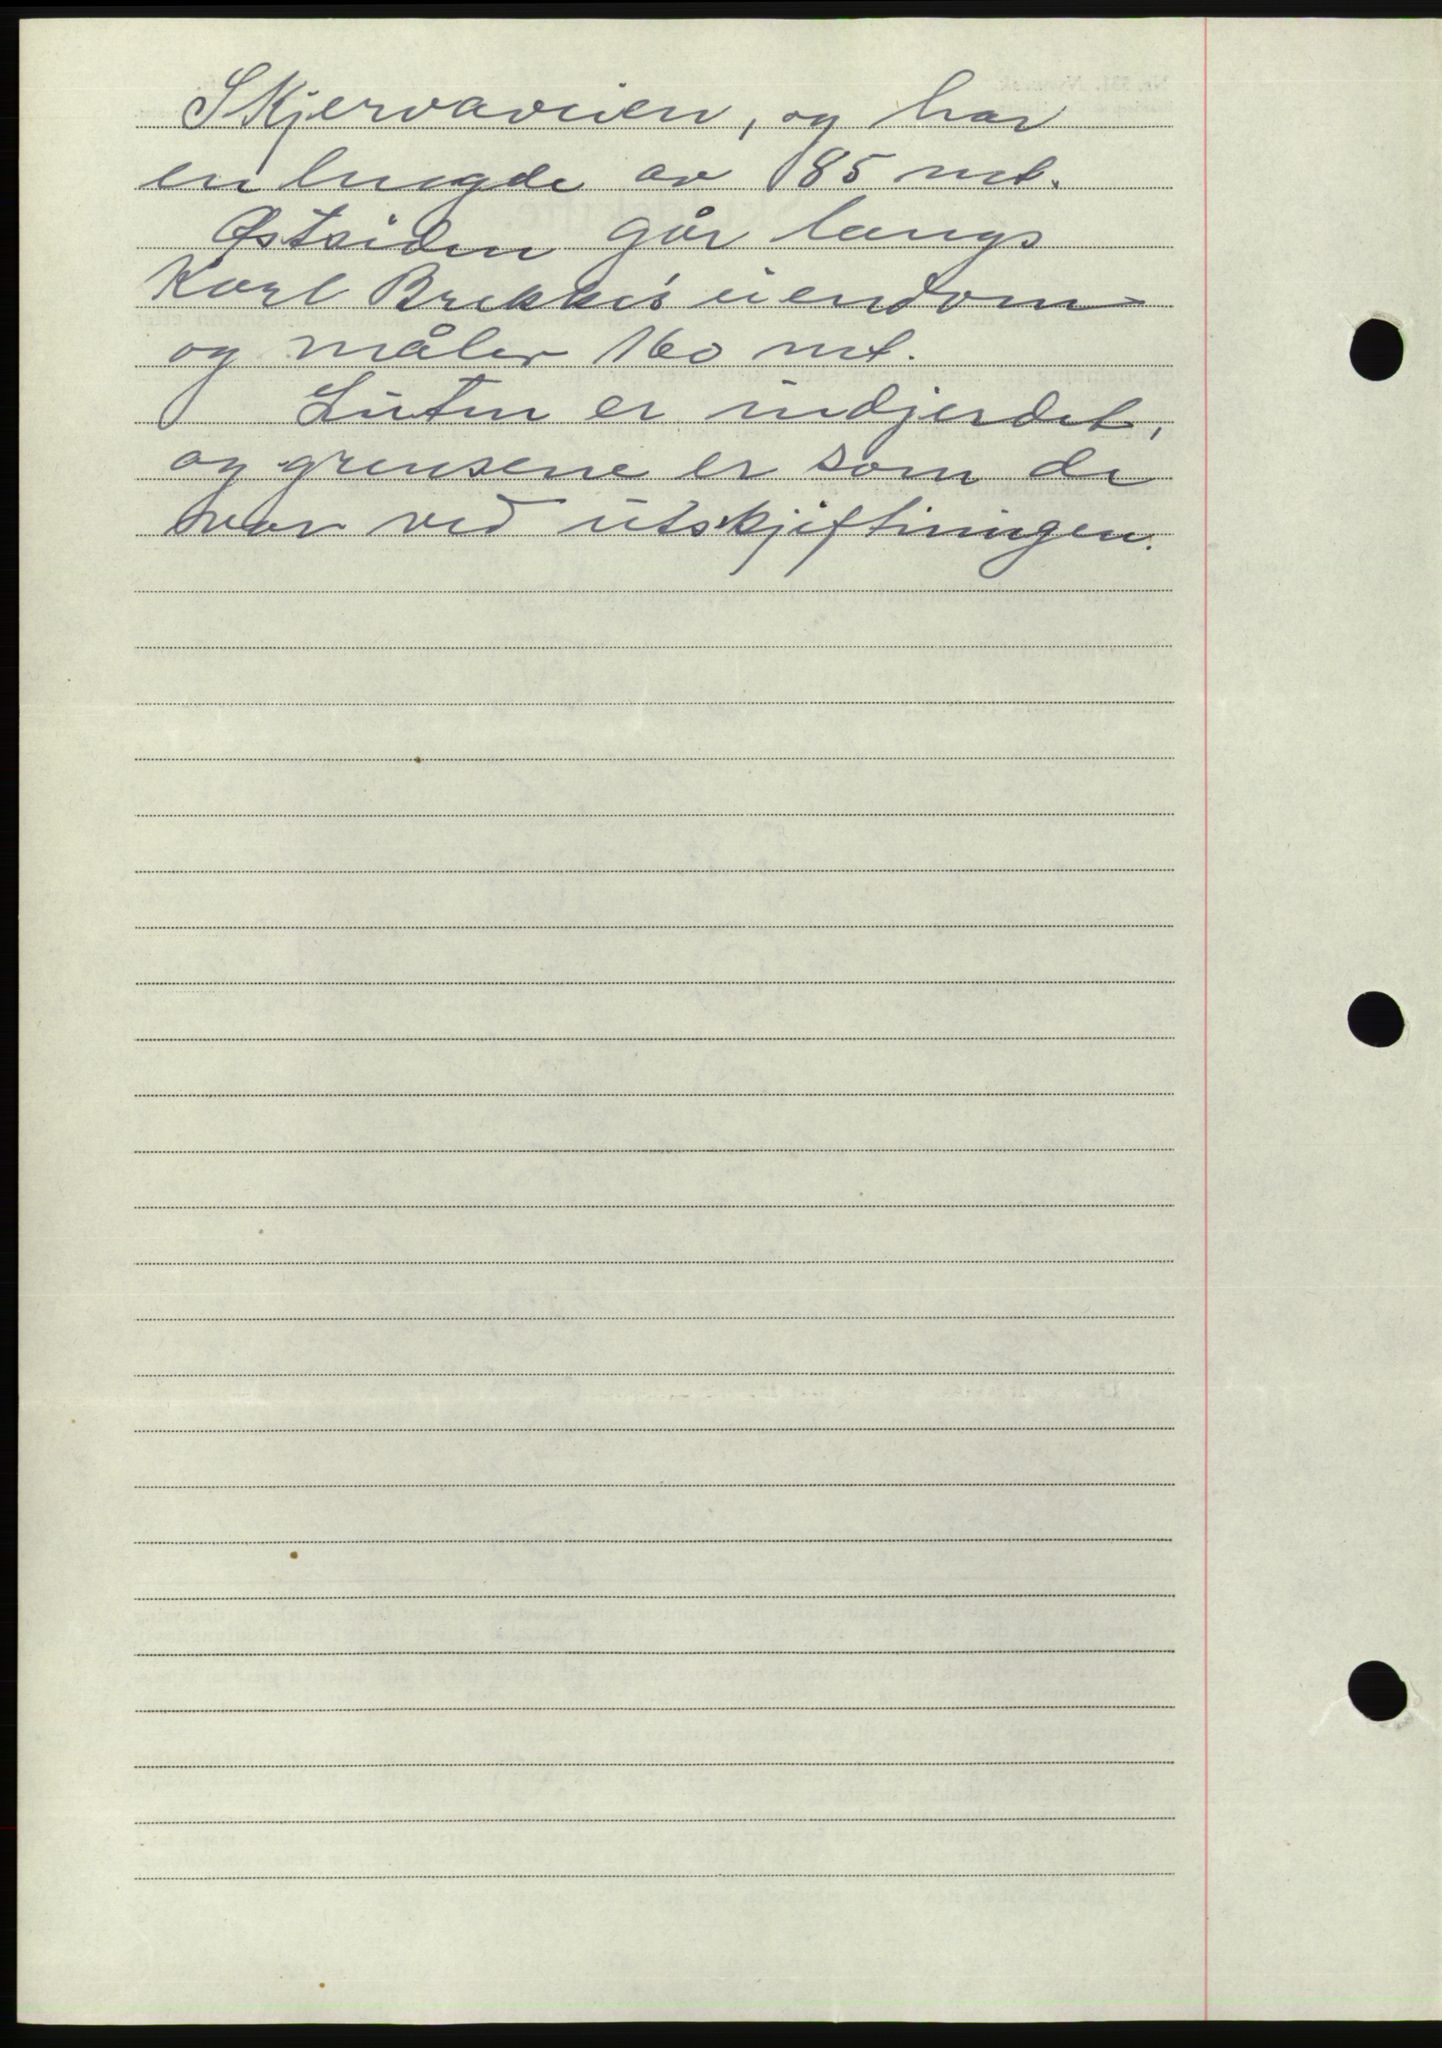 Skjervaveien, og har
en lengde av 185 mt.
Østsiden går langs
Karl Brekke's eiendom
og måler 160 mt.
Luten er indjerdet,
og grensene er som de
var ved utskjiftningen.